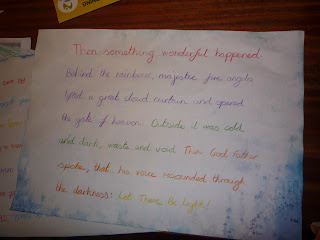 Then something wonderful happened.
Behind the rainbow, majestic fire angels
lifted a great cloud curtain and opened
the gate of heaven. Outside it was cold
and dark, waste and void. Then God Father
spoke, that his voice resounded through
the darkness: Let There Be Light!